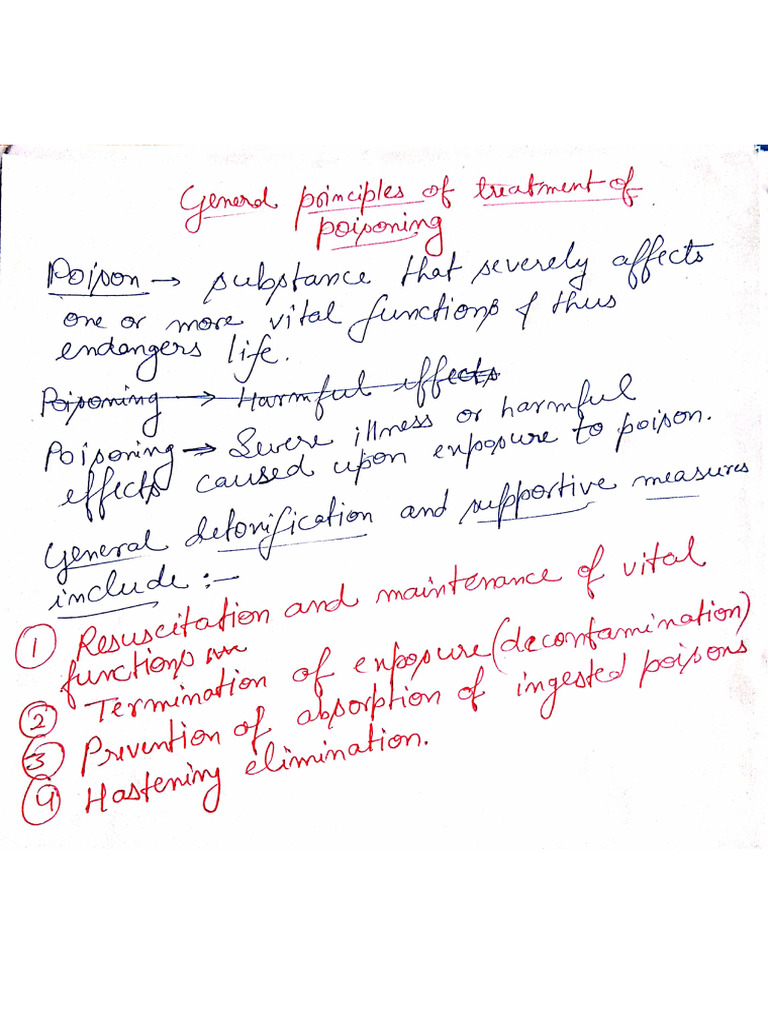 General principles of treatment of
poisoning
Poison → substance that severely affects
one or more vital functions & thus
endangers life.
Poisoning → Harmful effects
Poisoning → Severe illness or harmful
effects caused upon exposure to poison.
General detoxification and supportive measures
include :-
① Resuscitation and maintenance of vital
functions
② Termination of exposure (decontamination)
③ Prevention of absorption of ingested poisons
④ Hastening elimination.